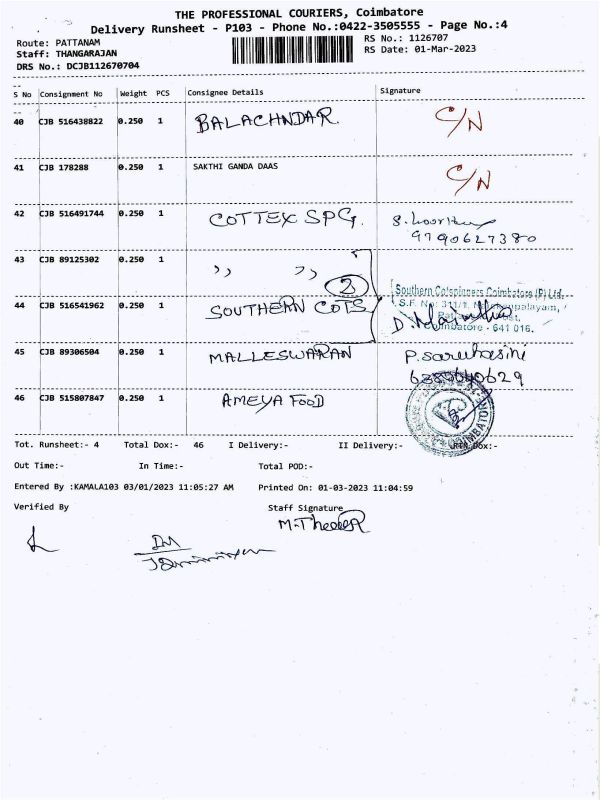 THE PROFESSIONAL COURIERS, Coimbatore
Delivery Runsheet - P103 - Phone No.:0422-3505555 - Page No.:4
Route: PATTANAM RS No.: 1126707
Staff: THANGARAJAN RS Date: 01-Mar-2023
DRS No.: DCJB112670704
S No Consignment No Weight PCS Consignee Details Signature
40 CJB 516438822 0.250 1 BALACHNDAR. C/N
41 CJB 178288 0.250 1 SAKTHI GANDA DAAS C/N
42 CJB 516491744 0.250 1 COTTEX SPG.
9790627380
43 CJB 89125302 0.250 1 ,, ,,
2
Southern Cotspinners Coimbatore (P) Ltd.
44 CJB 516541962 0.250 1 SOUTHERN COTS
S.F. No: 311/1,
Coimbatore - 641 016.
45 CJB 89306504 0.250 1 MALLESWARAN
46 CJB 515807847 0.250 1 AMEYA FOOD
COIMBATORE
Tot. Runsheet:- 4 Total Dox:- 46 I Delivery:- II Delivery:- RTN Dox:-
Out Time:- In Time:- Total POD:-
Entered By :KAMALA103 03/01/2023 11:05:27 AM Printed On: 01-03-2023 11:04:59
Verified By Staff Signature